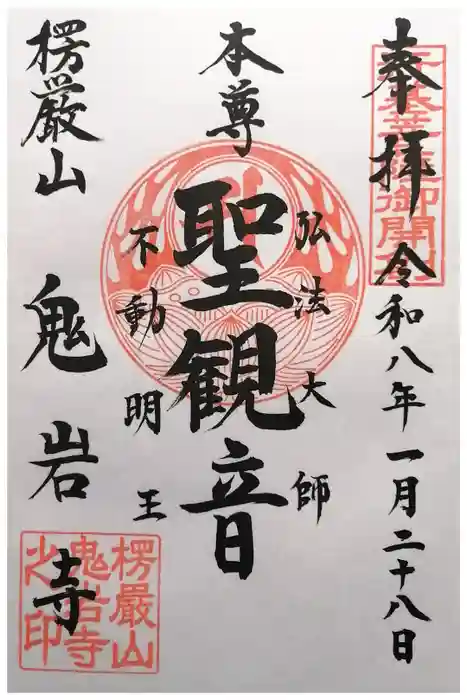 奉拝 令和八年一月二十八日
行基菩薩御開創
本尊 聖観音
弘法大師
不動明王
楞厳山 鬼岩寺
楞嚴山
鬼岩寺
之印